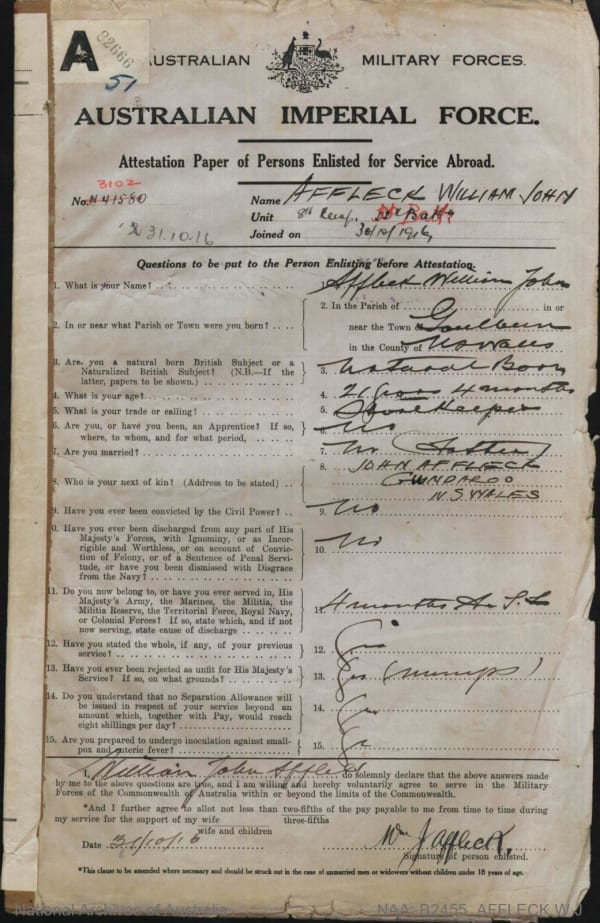 A
82666
51
AUSTRALIAN MILITARY FORCES.
AUSTRALIAN IMPERIAL FORCE.
Attestation Paper of Persons Enlisted for Service Abroad.
3102
No. N 41580
Name AFFLECK WILLIAM JOHN
Unit 8th Reinf. Battn
31.10.16
Joined on 30/10/1916
Questions to be put to the Person Enlisting before Attestation.
1. What is your Name? Affleck William John
2. In or near what Parish or Town were you born? 2. In the Parish of in or
near the Town of Goulburn
in the County of N S Wales
3. Are you a natural born British Subject or a
Naturalized British Subject? (N.B.—If the
latter, papers to be shown.) 3. Natural Born
4. What is your age? 4. 21 years 4 months
5. What is your trade or calling? 5. Storekeeper
6. Are you, or have you been, an Apprentice? If so,
where, to whom, and for what period, 6. No
7. Are you married? 7. No (Father)
8. Who is your next of kin? (Address to be stated) 8. JOHN AFFLECK
GUNDAROO
N.S. WALES
9. Have you ever been convicted by the Civil Power? 9. No
10. Have you ever been discharged from any part of His
Majesty's Forces, with Ignominy, or as Incor-
rigible and Worthless, or on account of Convic-
tion of Felony, or of a Sentence of Penal Servi-
tude, or have you been Dismissed with Disgrace
from the Navy? 10. No
11. Do you now belong to, or have you ever served in, His
Majesty's Army, the Marines, the Militia, the
Militia Reserve, the Territorial Force, Royal Navy,
or Colonial Forces? If so, state which, and if not
now serving, state cause of discharge 11. 4 months
12. Have you stated the whole, if any, of your previous
service? 12. Yes
13. Have you ever been rejected as unfit for His Majesty's
Service? If so, on what grounds? 13. Yes (mumps)
14. Do you understand that no Separation Allowance will
be issued in respect of your service beyond an
amount which, together with Pay, would reach
eight shillings per day? 14. Yes
15. Are you prepared to undergo inoculation against small-
pox and enteric fever? 15. Yes
I, William John Affleck do solemnly declare that the above answers made
by me to the above questions are true, and I am willing and hereby voluntarily agree to serve in the Military
Forces of the Commonwealth of Australia within or beyond the limits of the Commonwealth.
*And I further agree to allot not less than two-fifths of the pay payable to me from time to time during
my service for the support of my wife three-fifths
wife and children
Date 31/10/16 Wm J Affleck.
Signature of person enlisted.
*This clause to be amended where necessary and should be struck out in the case of unmarried men or widowers without children under 18 years of age.
National Archives of Australia NAA: B2455, AFFLECK W J